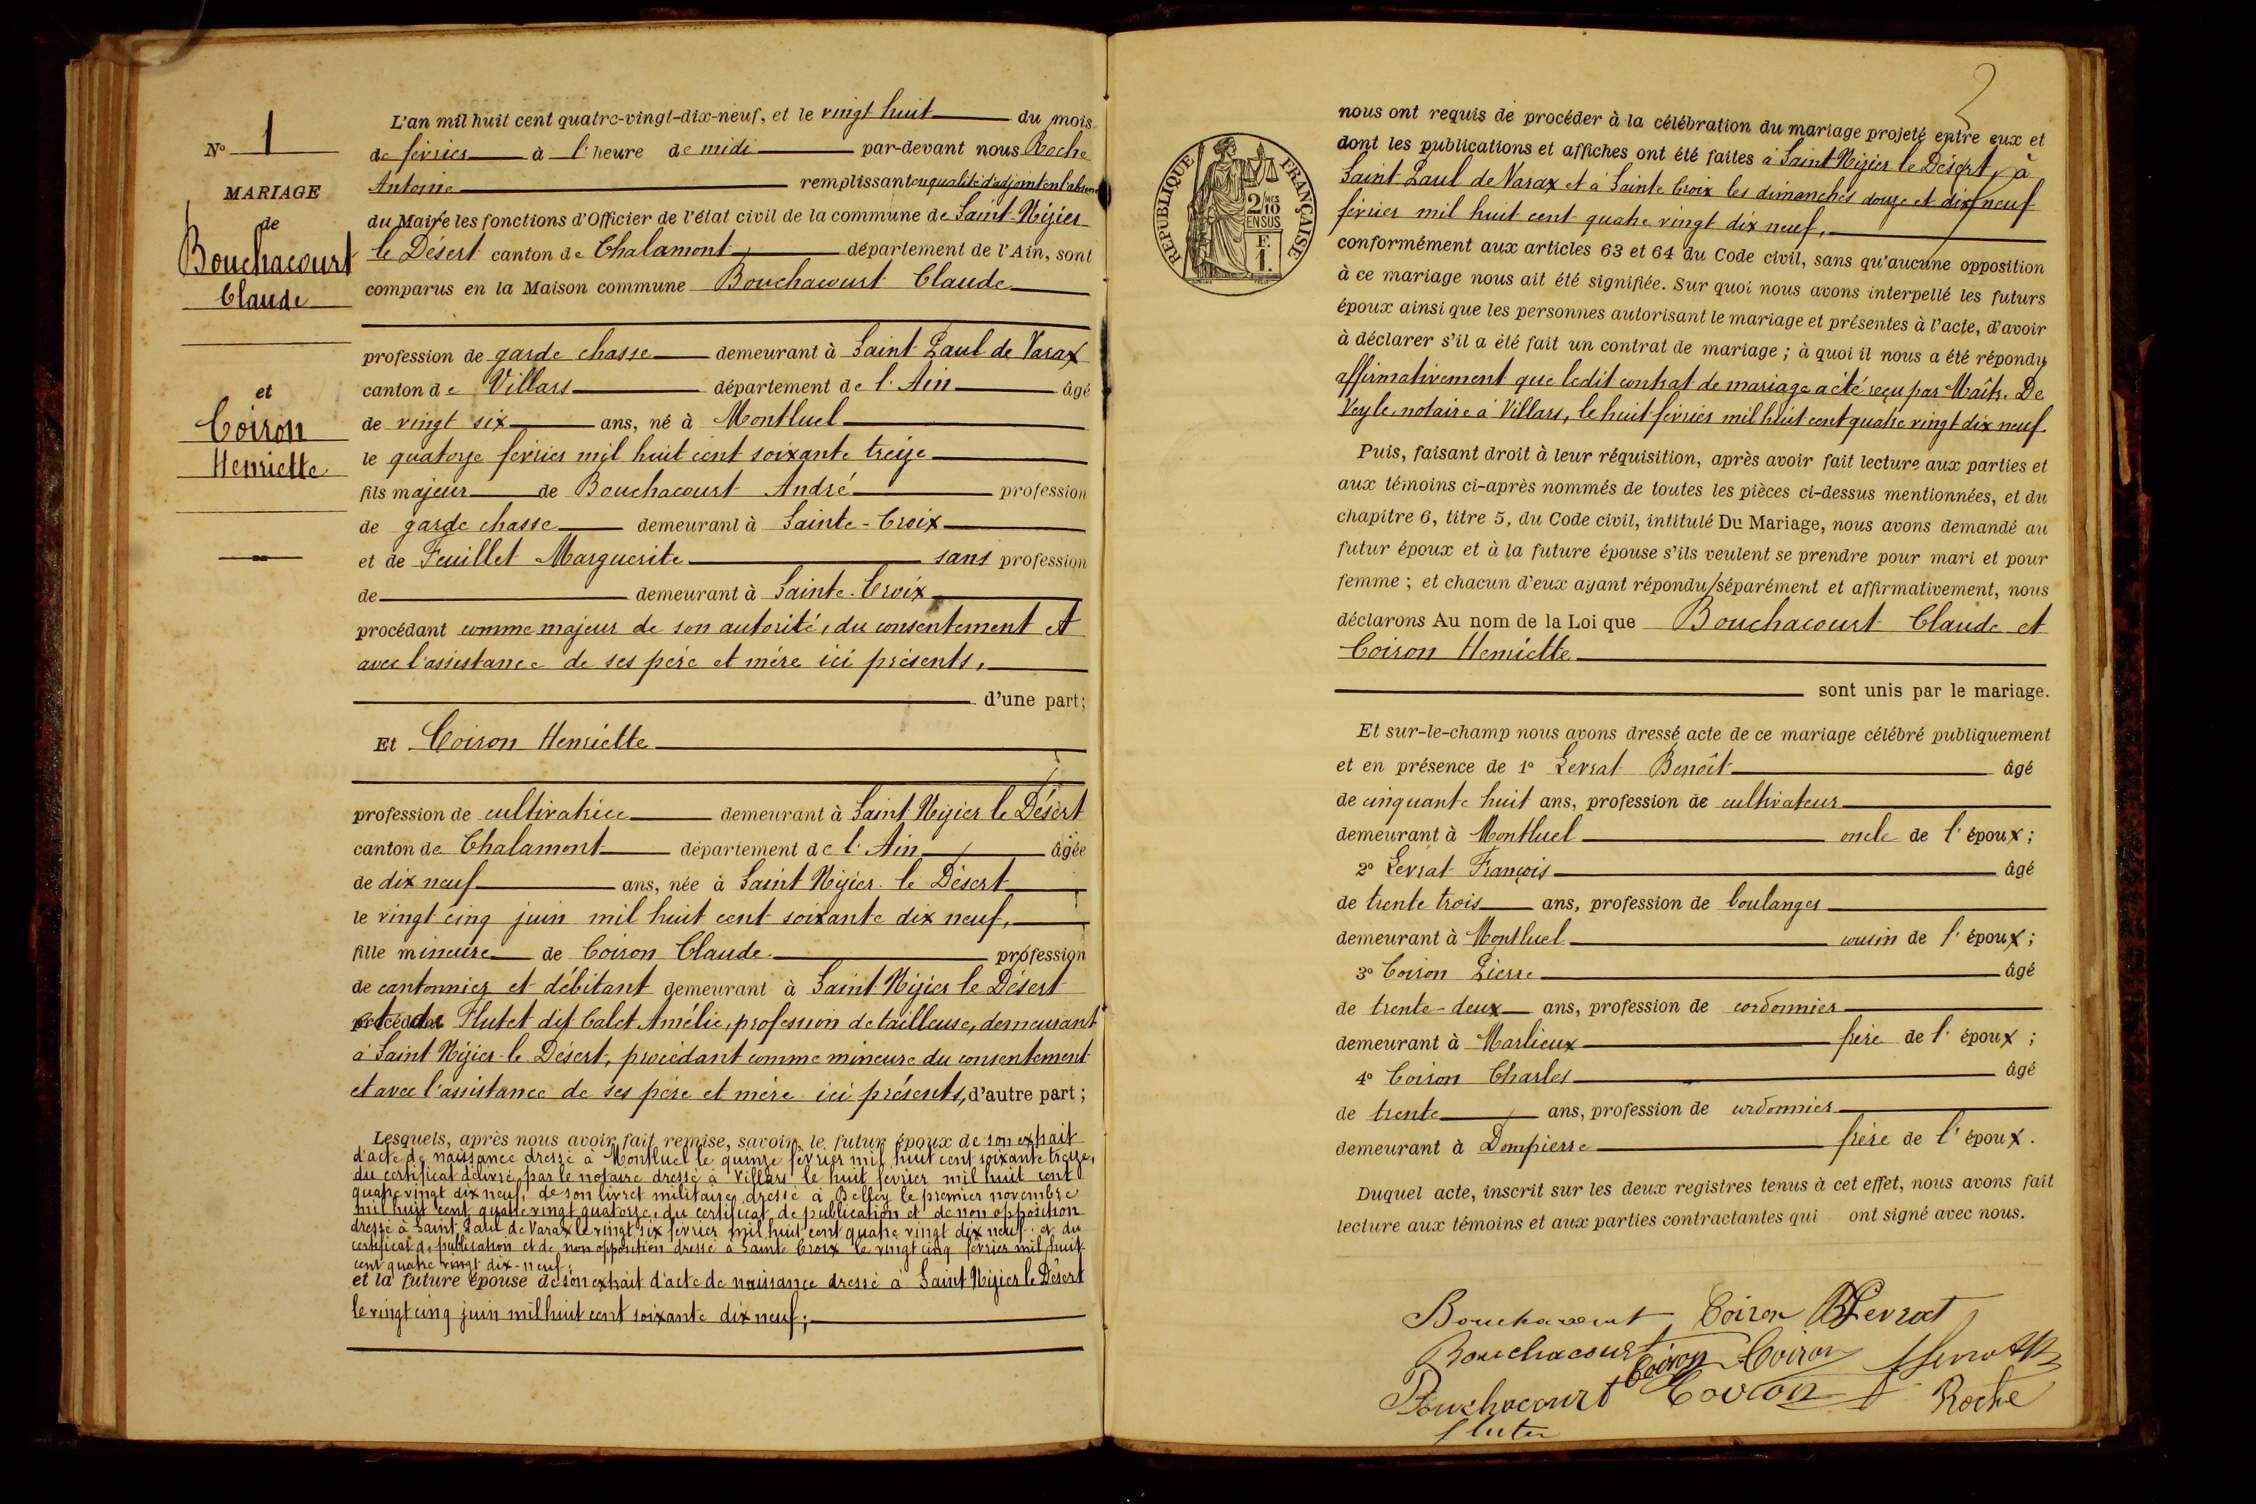 N° 1
MARIAGE
de
Bouchacourt
Claude
et
Coiron
Henriette
L'an mil huit cent quatre-vingt-dix-neuf, et le vingt huit du mois
de février à l'heure de midi par-devant nous Roche
Antoine remplissant en qualité d'adjoint en l'absence
du Maire les fonctions d'Officier de l'état civil de la commune de Saint-Nizier
le Désert canton de Chalamont département de l'Ain, sont
comparus en la Maison commune Bouchacourt Claude
profession de garde chasse demeurant à Saint Paul de Varax
canton de Villars département de l'Ain âgé
de vingt six ans, né à Montluel
le quatorze février mil huit cent soixante treize
fils majeur de Bouchacourt André profession
de garde chasse demeurant à Sainte-Croix
et de Feuillet Marguerite sans profession
de demeurant à Sainte-Croix
procédant comme majeur de son autorité, du consentement et
avec l'assistance de ses père et mère ici présents,
d'une part;
Et Coiron Henriette
profession de cultivatrice demeurant à Saint Nizier le Désert
canton de Chalamont département de l'Ain âgée
de dix neuf ans, née à Saint Nizier le Désert
le vingt cinq juin mil huit cent soixante dix neuf,
fille mineure de Coiron Claude profession
de cantonnier et débitant demeurant à Saint Nizier le Désert
et de Flutet dit Calet Amélie, profession de tailleuse, demeurant
à Saint Nizier-le Désert, procédant comme mineure du consentement
et avec l'assistance de ses père et mère ici présents, d'autre part;
Lesquels, après nous avoir fait remise, savoir, le futur époux de son extrait
d'acte de naissance dressé à Montluel le quinze février mil huit cent soixante treize,
du certificat délivré par le notaire dressé à Villars le huit février mil huit cent
quatre vingt dix neuf, de son livret militaire dressé à Belley le premier novembre
mil huit cent quatre vingt quatorze, du certificat de publication et de non opposition
dressé à Saint Paul de Varax le vingt six février mil huit cent quatre vingt dix neuf et du
certificat de publication et de non opposition dressé à Sainte Croix le vingt cinq février mil huit
cent quatre vingt dix-neuf;
et la future épouse de son extrait d'acte de naissance dressé à Saint Nizier le Désert
le vingt cinq juin mil huit cent soixante dix neuf;
2
RÉPUBLIQUE FRANÇAISE
2/10
EN SUS
F.
1.
nous ont requis de procéder à la célébration du mariage projeté entre eux et
dont les publications et affiches ont été faites à Saint Nizier le Désert, à
Saint Paul de Varax et à Sainte Croix les dimanches douze et dix neuf
février mil huit cent quatre vingt dix neuf,
conformément aux articles 63 et 64 du Code civil, sans qu'aucune opposition
à ce mariage nous ait été signifiée. Sur quoi nous avons interpellé les futurs
époux ainsi que les personnes autorisant le mariage et présentes à l'acte, d'avoir
à déclarer s'il a été fait un contrat de mariage; à quoi il nous a été répondu
affirmativement que ledit contrat de mariage a été reçu par Maître De
Veyle notaire à Villars, le huit février mil huit cent quatre vingt dix neuf.
Puis, faisant droit à leur réquisition, après avoir fait lecture aux parties et
aux témoins ci-après nommés de toutes les pièces ci-dessus mentionnées, et du
chapitre 6, titre 5, du Code civil, intitulé Du Mariage, nous avons demandé au
futur époux et à la future épouse s'ils veulent se prendre pour mari et pour
femme; et chacun d'eux ayant répondu séparément et affirmativement, nous
déclarons Au nom de la Loi que Bouchacourt Claude et
Coiron Henriette
sont unis par le mariage.
Et sur-le-champ nous avons dressé acte de ce mariage célébré publiquement
et en présence de 1° Levrat Benoît âgé
de cinquante huit ans, profession de cultivateur
demeurant à Montluel oncle de l'époux;
2° Levrat François âgé
de trente trois ans, profession de boulanger
demeurant à Montluel cousin de l'époux;
3° Coiron Pierre âgé
de trente-deux ans, profession de cordonnier
demeurant à Marlieux frère de l'époux;
4° Coiron Charles âgé
de trente ans, profession de cordonnier
demeurant à Dompierre frère de l'époux.
Duquel acte, inscrit sur les deux registres tenus à cet effet, nous avons fait
lecture aux témoins et aux parties contractantes qui ont signé avec nous.
Bouchacourt Coiron B Levrat
Bouchacourt Coiron Coiron
Bouchacourt Coiron Roche